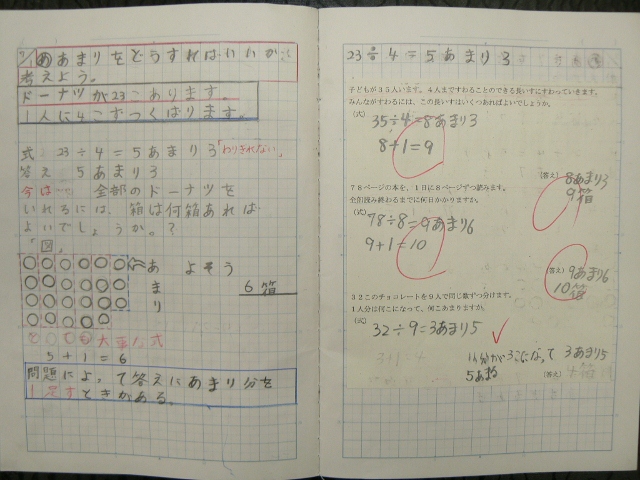 めあまりをどうすればいいか
考えよう。
ドーナツが23こあります。
1人に4こずつくばります。
式 23÷4=5あまり3「わりきれない」
答え 5あまり3
今は 全部のドーナツを
いれるには、箱は何箱あれば
よいでしょうか。?
「図」
あまり
よそう
6箱
とっても大事な公式
5+1=6
問題によって答えにあまり分を
1足すときがある。
23÷4=5あまり3
子どもが35人います。4人まですわることのできる長いすにすわっていきます。
みんながすわるには、この長いすはいくつあればよいでしょうか。
(式)
35÷4=8あまり3
8+1=9
(答え) 8あまり3
9箱
78ページの本を、1日に8ページずつ読みます。
全部読み終わるまでに何日かかりますか。
(式)
78÷8=9あまり6
9+1=10
(答え) 9あまり6
10箱
32このチョコレートを9人で同じ数ずつ分けます。
1人分は何こになって、何こあまりますか。
(式)
32÷9=3あまり5
1人分が3こになって 3あまり5
5あまる
(答え)